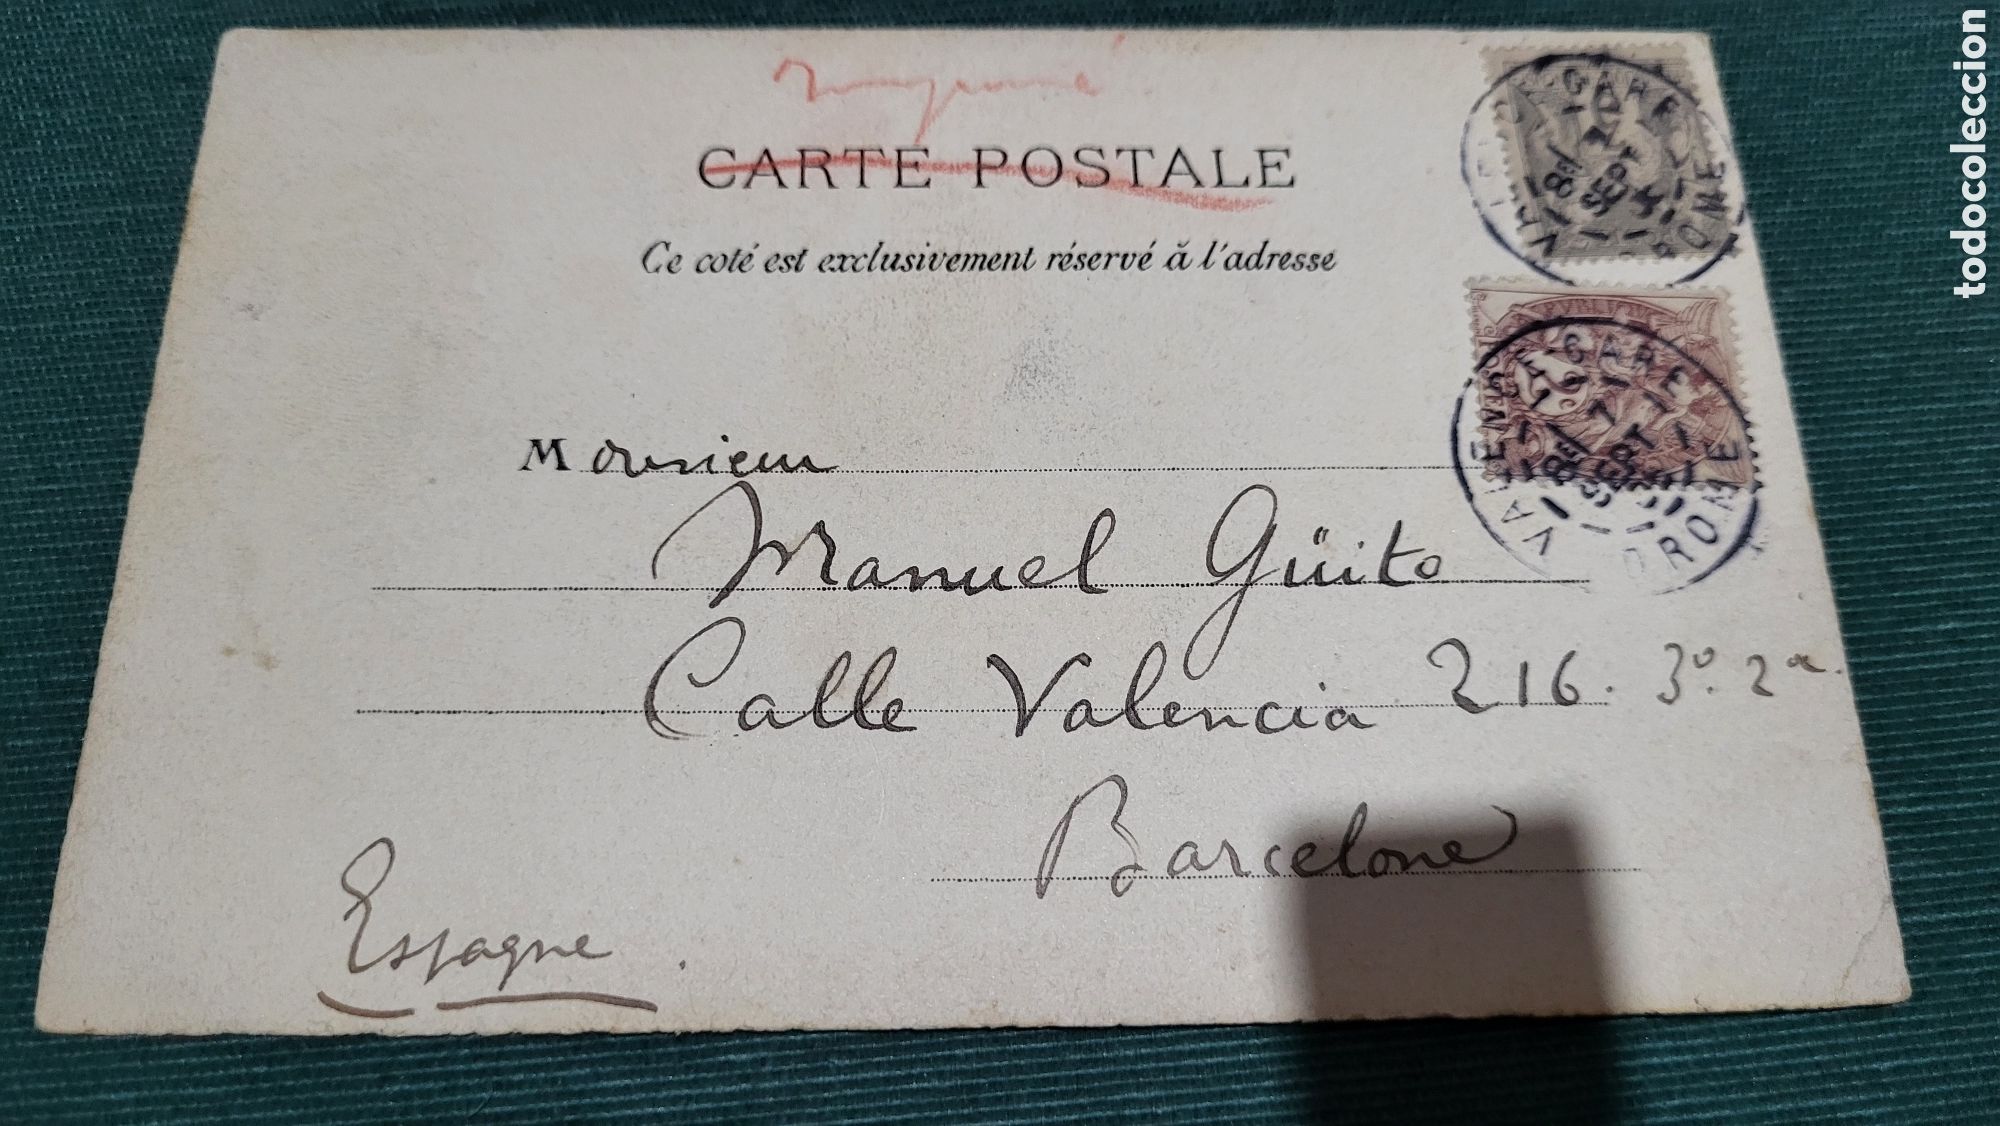 CARTE POSTALE
Ce coté est exclusivement réservé à l'adresse
Monsieur
Manuel Güito
Calle Valencia 216. 3º. 2ª.
Barcelone
Espagne.
VALENCE-GARE
8E
SEPT
DROME
VALENCE-GARE
8E
7
SEPT
DROME
todocoleccion